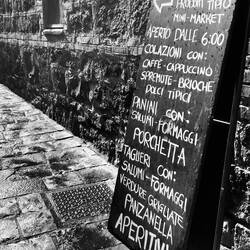 PRODOTTI TIPICI
MINI-MARKET
APERTO DALLE 6:00
COLAZIONI CON:
CAFFÈ-CAPPUCCINO
SPREMUTE-BRIOCHE
DOLCI TIPICI
PANINI CON:
SALUMI-FORMAGGI
PORCHETTA
TAGLIERI CON:
SALUMI-FORMAGGI
VERDURE GRIGLIATE
PANZANELLA
APERITIVI